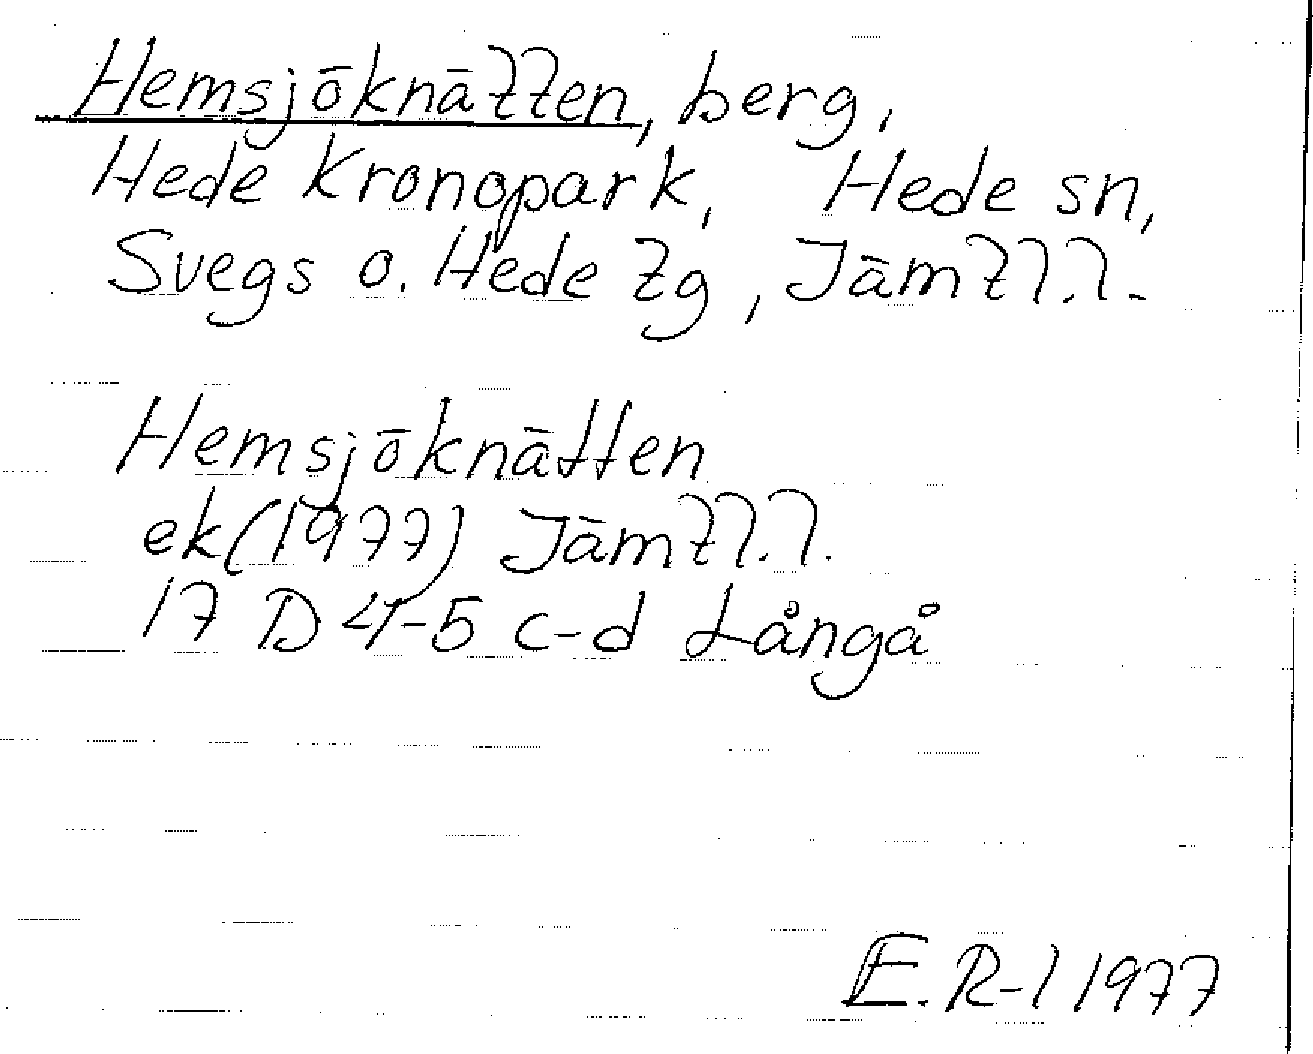 Hemsjöknätten, berg,
Hede kronopark, Hede sn,
Svegs o. Hede tg, Jämtl. l.
Hemsjöknätten
ek (1977) Jämtl. l.
17 D 4-5 c-d Långå
E. R-l 1977